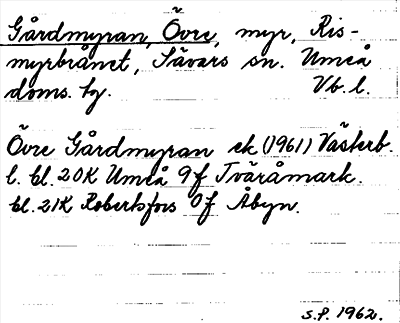 Gårdmyran, Övre, myr, Ris-
myrbrånet, Sävars sn. Umeå
doms. hg. Vb. l.
Övre Gårdmyran ek (1961) Västerb.
l. bl. 20K Umeå 9f Tväråmark.
bl. 21K Robertsfors 0f Åbyn.
S.P. 1962.